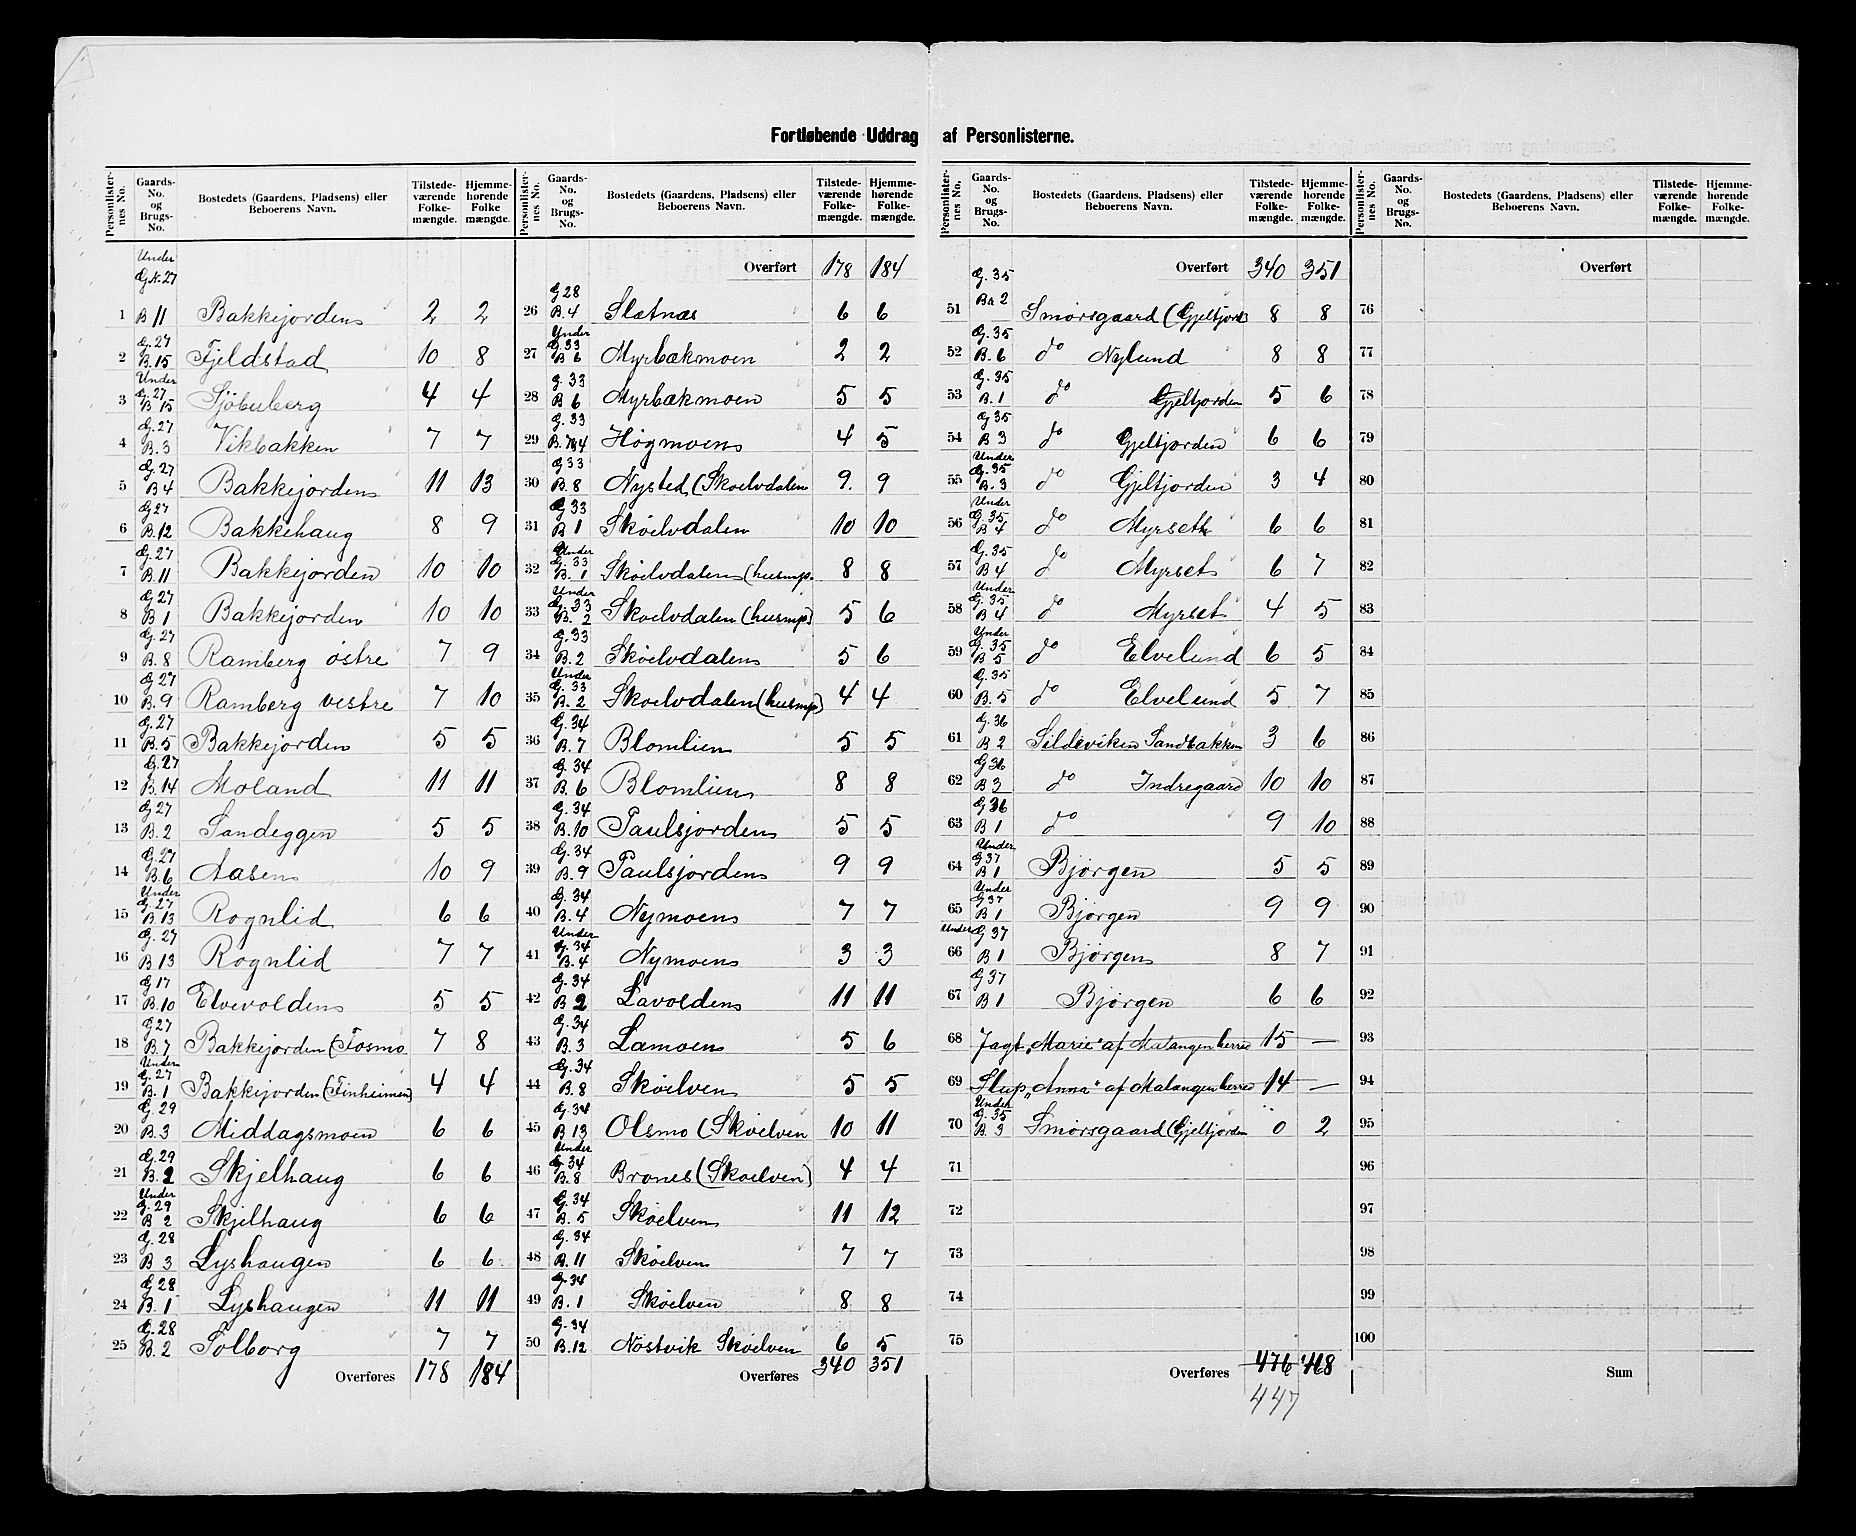 Fortløbende Uddrag af Personlisterne.
Personlister-nes No. Gaards-No. og Brugs-No. Bostedets (Gaardens, Pladsens) eller Beboerens Navn. Tilstede-værende Folke-mængde. Hjemme-hørende Folke mængde.
Under G.N. 27
1 B 11 Bakkejorden 2 2
2 G. 27 B. 15 Fjeldstad 10 8
3 Under G. 27 B 15 Sjöberg 4 4
4 G. 27 B. 3 Vikbakken 7 7
5 G. 27 B 4 Bakkejorden 11 13
6 G 27 B. 12 Bakkehaug 8 9
7 G. 27 B. 11 Bakkejorden 10 10
8 G. 27 B 1 Bakkejorden 10 10
9 G. 27 B. 8 Ramberg østre 7 9
10 G. 27 B. 9 Ramberg vestre 7 10
11 G. 27 B. 5 Bakkejorden 5 5
12 G. 27 B. 14 Moland 11 11
13 G 27 B. 2 Sandeggen 5 5
14 G. 27 B. 6 Aasen 10 9
15 Under G. 27 B. 13 Rognlid 6 6
16 G. 27 B 13 Rognlid 7 7
17 G 17 B. 10 Elvevolden 5 5
18 G 27 B. 7 Bakkejorden (Fosmo 7 8
19 Under G. 27 B. 1 Bakkejorden (Finheimen) 4 4
20 G. 29 B. 3 Middagsmoen 6 6
21 G. 29 B. 2 Skjelhaug 6 6
22 Under G. 29 B 2 Skjelhaug 6 6
23 G. 28 B 3 Lyshaugen 6 6
24 G 28 B. 1 Lyshaugen 11 11
25 G. 28 B. 2 Solborg 7 7
Overføres 178 184
Personlister-nes No. Gaards-No. og Brugs-No. Bostedets (Gaardens, Pladsens) eller Beboerens Navn. Tilstede-værende Folke-mængde. Hjemme-hørende Folke-mængde.
Overført 178 184
26 G 28 B. 4 Slætnæs 6 6
27 Under G. 33 B 6 Myrbækmoen 2 2
28 G. 33 B 6 Myrbækmoen 5 5
29 G. 33 B. 4 Høgmoen 4 5
30 G 33 B. 8 Nysted (Skoelvdalen 9. 9
31 G 33 B 1 Skøelvdalen 10 10
32 Under G. 33 B. 1 Skøelvdalen (husmp. 8 8
33 Under G. 33 B. 2 Skoelvdalen (husmp) 5 6
34 G. 33 B. 2 Skøelvdalen 5 6
35 Under G. 33 B. 2 Skoelvdalen (husmp) 4 4
36 G. 34 B. 7 Blomlien 5 5
37 G. 34 B. 6 Blomlien 8 8
38 G. 34 B. 10 Paulsjorden 5 5
39 G. 34 B. 9 Paulsjorden 9 9
40 G. 34 B. 4 Nymoen 7 7
41 Under G. 34 B. 4 Nymoen 3 3
42 G. 34 B 2 Lavolden 11 11
43 G. 34 B. 3 Lamoen 5 6
44 G. 34 B. 8 Skøelven 5 5
45 G. 34 B. 13 Olsmo (Skøelven 10 11
46 Under G. 34 B. 8 Brones (Skoelven) 4 4
47 G. 34 B. 5 Skøelven 11 12
48 G. 34 B. 11 Skøelven 7 7
49 G. 34 B. 1 Skøelven 8 8
50 G. 34 B. 12 Nostvik Skøelven 6 5
Overføres 340 351
Personlister-nes No. Gaards-No. og Brugs-No. Bostedets (Gaardens, Pladsens) eller Beboerens Navn. Tilstede-værende Folke-mængde. Hjemme-hørende Folke-mængde.
Overført 340 351
51 G. 35 Bn 2 Smorsgaard (Gjeltjord 8 8
52 G. 35 B. 6 do Nylund 8 8
53 G. 35 B. 1 do Gjeltjorden 5 6
54 G 35 B 3 do Gjeltjorden 6 6
55 Under G. 35 B. 3 do Gjeltjorden 3 4
56 Under G. 35 B 4 do Myrseth 6 6
57 G. 35 B 4 do Myrset 6 7
58 Under G. 35 B 4 do Myrset 4 5
59 Under G. 35 B 5 do Elvelund 6 5
60 G. 35 B. 5 do Elvelund 5 7
61 G. 36 B 2 Sildeviken Sandbakken 3 6
62 G 36 B 3 do Indregaard 10 10
63 G 36 B 1 do 9 10
64 Under G 37 B 1 Bjørgen 5 5
65 Under G 37 B 1 Bjørgen 9 9
66 Under G 37 B 1 Bjørgen 8 7
67 G 37 B 1 Bjørgen 6 6
68 Jagt „Marie" af Malangen herred 15 —
69 Slup „Anna" af Malangen herred 14 —
70 Under G. 35 B. 3 Smørsgaard (Gjeltjorden 0 2
71
72
73
74
75
Overføres 476 468
447
Personlister-nes No. Gaards-No. og Brugs-No. Bostedets (Gaardens, Pladsens) eller Beboerens Navn. Tilstede-værende Folke-mængde. Hjemme-hørende Folke-mængde.
Overført
76
77
78
79
80
81
82
83
84
85
86
87
88
89
90
91
92
93
94
95
96
97
98
99
100
Sum